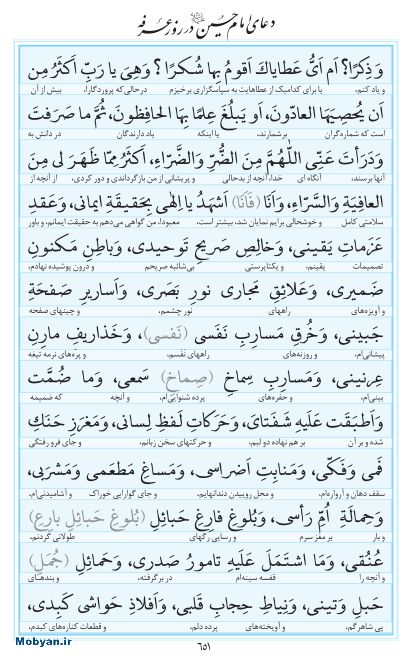 دعای امام حسین در روز عرفه
وَذِكرًا؟ اَم اَیُّ عَطایاكَ اَقومُ بِها شُكرًا؟ وَهِیَ یا رَبِّ اَكثَرُ مِن
و یاد کنم، یا برای کدامیک از عطاهایت به سپاسگزاری برخیزم درحالی‌که پروردگارا، بیش از آن
اَن یُحصِیَهَا العادّونَ، اَو یَبلُغَ عِلمًا بِهَا الحافِظونَ، ثُمَّ ما صَرَفتَ
است که شماره‌گران برشمارند، یا اینکه یاد دارندگان در دانش به
وَدَرَأتَ عَنِّی اَللّٰهُمَّ مِنَ الضُّرِّ وَالضَّرّاءِ، اَكثَرُ مِمّا ظَهَرَ لی مِنَ
آنها برسند، آنگاه ای خدا، آنچه از بدحالی و پریشانی از من بازگرداندی و دور کردی، از آنچه از
العافِیَةِ وَالسَّرّاءِ، وَاَنَا (فَاَنَا) اَشهَدُ یا اِلٰهی بِحَقیقَةِ ایمانی، وَعَقدِ
سلامتی کامل و خوشحالی برایم نمایان شد، بیشتر است، معبودا، من گواهی می‌دهم به حقیقت ایمانم، و باور
عَزَماتِ یَقینی، وَخالِصِ صَریحِ تَوحیدی، وَباطِنِ مَكنونِ
تصمیمات یقینم، و یکتاپرستی بی‌شائبه صریحم و درون پوشیده نهادم،
ضَمیری، وَعَلائِقِ مَجاری نورِ بَصَری، وَاَساریرِ صَفحَةِ
و آویزه‌های راههای نور چشمم، و چینهای صفحه
جَبینی، وَخُرقِ مَسارِبِ نَفَسی (نَفسی)، وَخَذاریفِ مارِنِ
پیشانی‌ام، و روزنه‌های راههای نفسم، و پره‌های نرمه تیغه
عِرنینی، وَمَسارِبِ سِماخِ (صِماخِ) سَمعی، وَما ضُمَّت
بینی‌ام، و حفره‌های پرده شنوایی‌ام، و آنچه که ضمیمه
وَاَطبَقَت عَلَیهِ شَفَتایَ، وَحَرَكاتِ لَفظِ لِسانی، وَمَغرَزِ حَنَكِ
شده و بر آن بر هم نهاده دو لبم، و حرکتهای سخن زبانم، و جای فرو رفتگی
فَمی وَفَكّی، وَمَنابِتِ اَضراسی، وَمَساغِ مَطعَمی وَمَشرَبی،
سقف دهان و آرواره‌ام، و محل روییدن دندانهایم، و جای گوارایی خوراک و آشامیدنی‌ام،
وَحِمالَةِ اُمِّ رَأسی، وَبُلوغِ فارِغِ حَبائِلِ (بُلوغِ حَبائِلِ بارِعِ)
و بار بر مغز سرم و رسایی رگهای طولانی گردنم،
عُنُقی، وَمَا اشتَمَلَ عَلَیهِ تامورُ صَدری، وَحَمائِلِ (جُمَلِ)
و آنچه را قفسه سینه‌ام در بر گرفته، و بندهای
حَبلِ وَتینی، وَنِیاطِ حِجابِ قَلبی، وَاَفلاذِ حَواشی كَبِدی،
پی شاهرگم، و آویخته‌های پرده دلم، و قطعات کناره‌های کبدم،
۶۵۱
Mobyan.ir